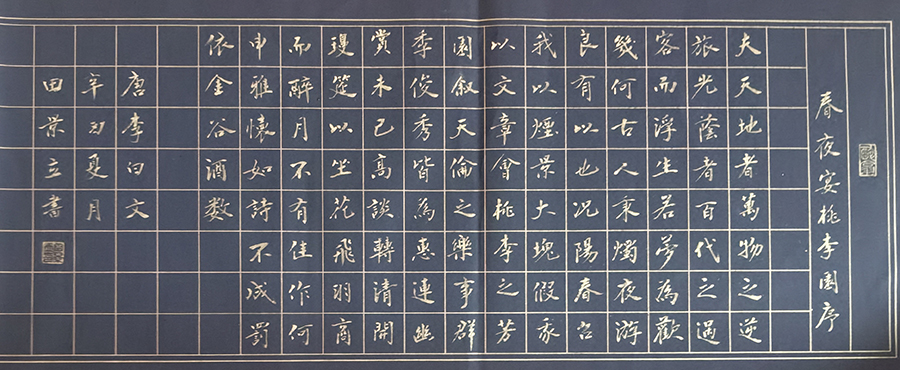 春夜宴桃李園序
夫天地者萬物之逆
旅光蔭者百代之過
客而浮生若夢為歡
幾何古人秉燭夜游
良有以也況陽春召
我以煙景大塊假我
以文章會桃李之芳
園叙天倫之樂事群
季俊秀皆為惠連幽
賞未已高談轉清開
瓊筵以坐花飛羽商
而醉月不有佳作何
申雅懷如詩不成罰
依金谷酒數
唐李白文
辛丑夏月
田景立書